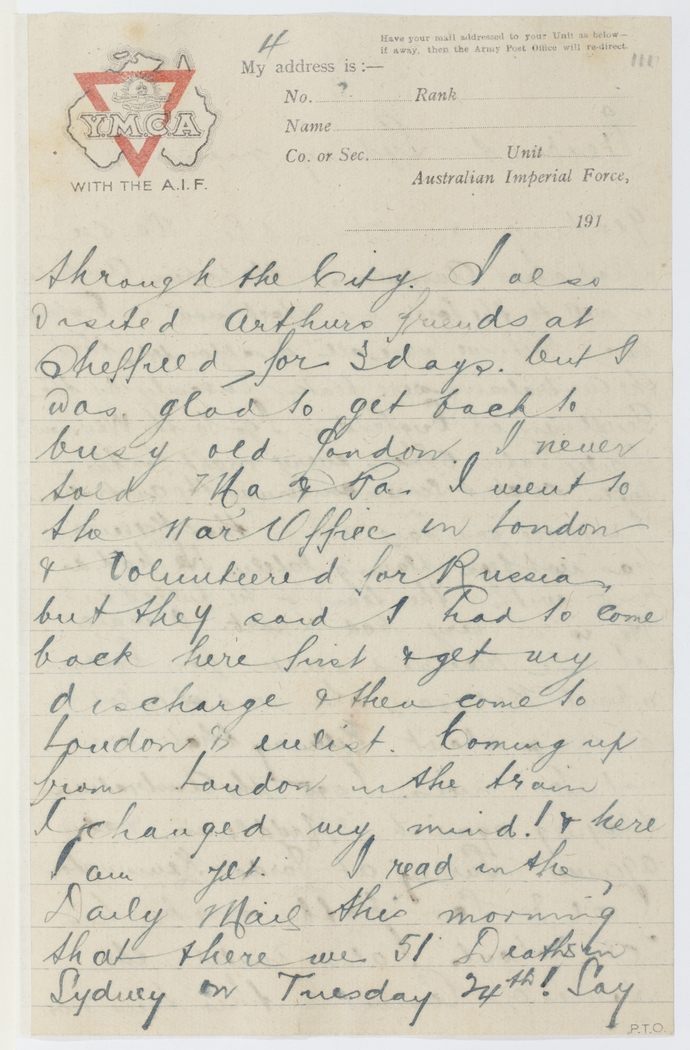 4
Have your mail addressed to your Unit as below—
if away, then the Army Post Office will re-direct.
My address is :—
No. Rank
Name
Co. or Sec. Unit
Australian Imperial Force,
191
Y.M.C.A
WITH THE A.I.F.
through the City. I also
visited Arthurs friends at
Sheffield, for 3 days. but I
was glad to get back to
busy old London. I never
told Ma & Pa. I went to
the War Office in London
& Volunteered for Russia,
but they said I had to come
back here first & get my
discharge & then come to
London & enlist. Coming up
from London in the train
I changed my mind! & here
I am yet. I read in the
Daily Mail this morning
that there were 51 Deaths in
Sydney on Tuesday 24th! Say
P.T.O.